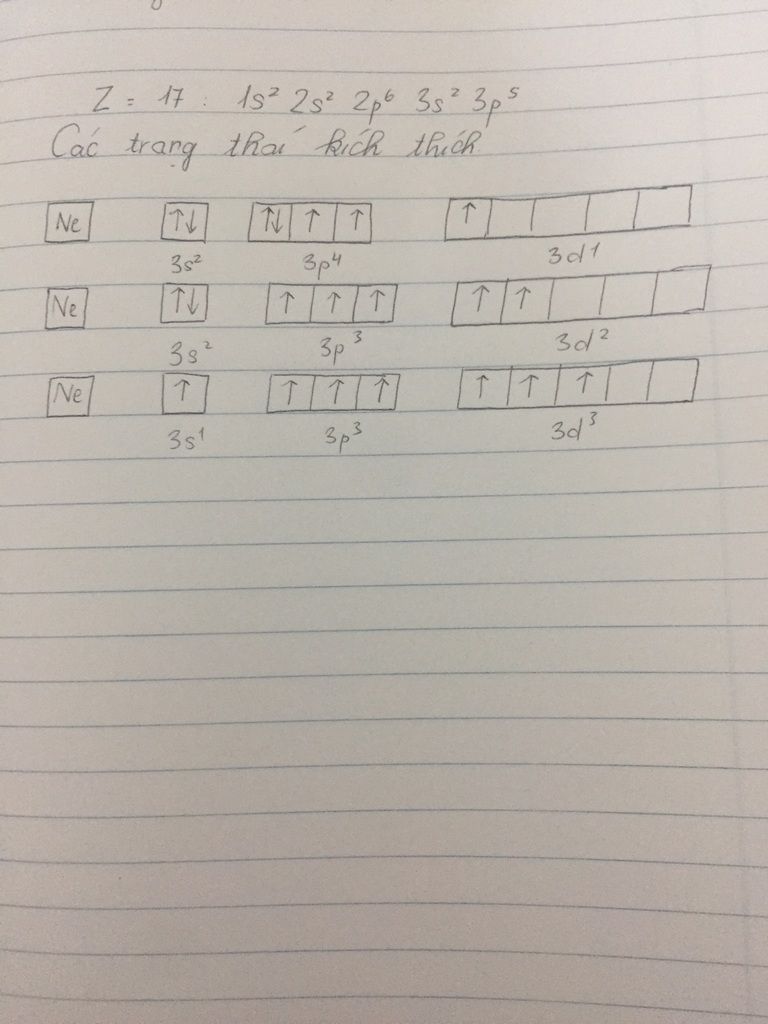 Z = 17 : 1s² 2s² 2p⁶ 3s² 3p⁵
Các trạng thái kích thích
Ne ↑↓ ↑↓ ↑ ↑ ↑
3s² 3p⁴ 3d¹
Ne ↑↓ ↑ ↑ ↑ ↑ ↑
3s² 3p³ 3d²
Ne ↑ ↑ ↑ ↑ ↑ ↑ ↑
3s¹ 3p³ 3d³